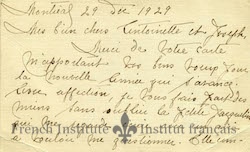 Montréal 29 Dec 1929
Mes bien chers Antoinette et Joseph,
Merci de votre carte
m'apportant vos bons voeux pour
la Nouvelle Année qui s'avance.
affection je vous fais part des
miens sans oublier la petite Jacqueline
qui me
à vouloir me questionner. Elle
French Institute Institut français